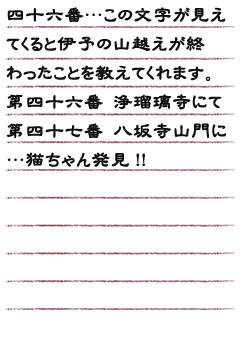 四十六番…この文字が見え
てくると伊予の山越えが終
わったことを教えてくれます。
第四十六番 浄瑠璃寺にて
第四十七番 八坂寺山門に
…猫ちゃん発見!!